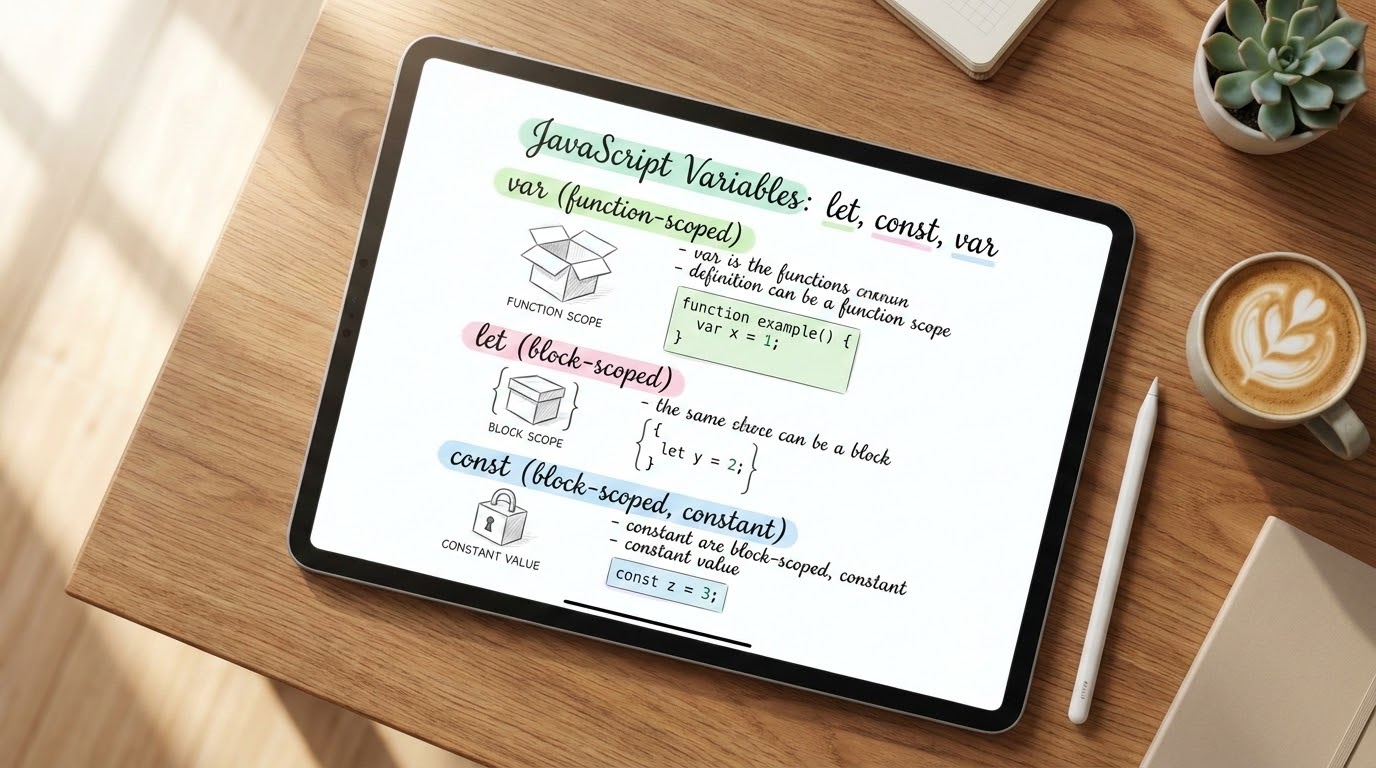 JavaScript Variables: let, const, var
var (function-scoped)
- var is the functions
- definition can be a function scope
FUNCTION SCOPE
function example() {
var x = 1;
}
let (block-scoped)
- the same can be a block
BLOCK SCOPE
{
let y = 2;
}
const (block-scoped, constant)
- constant are block-scoped, constant
- constant value
CONSTANT VALUE
const z = 3;